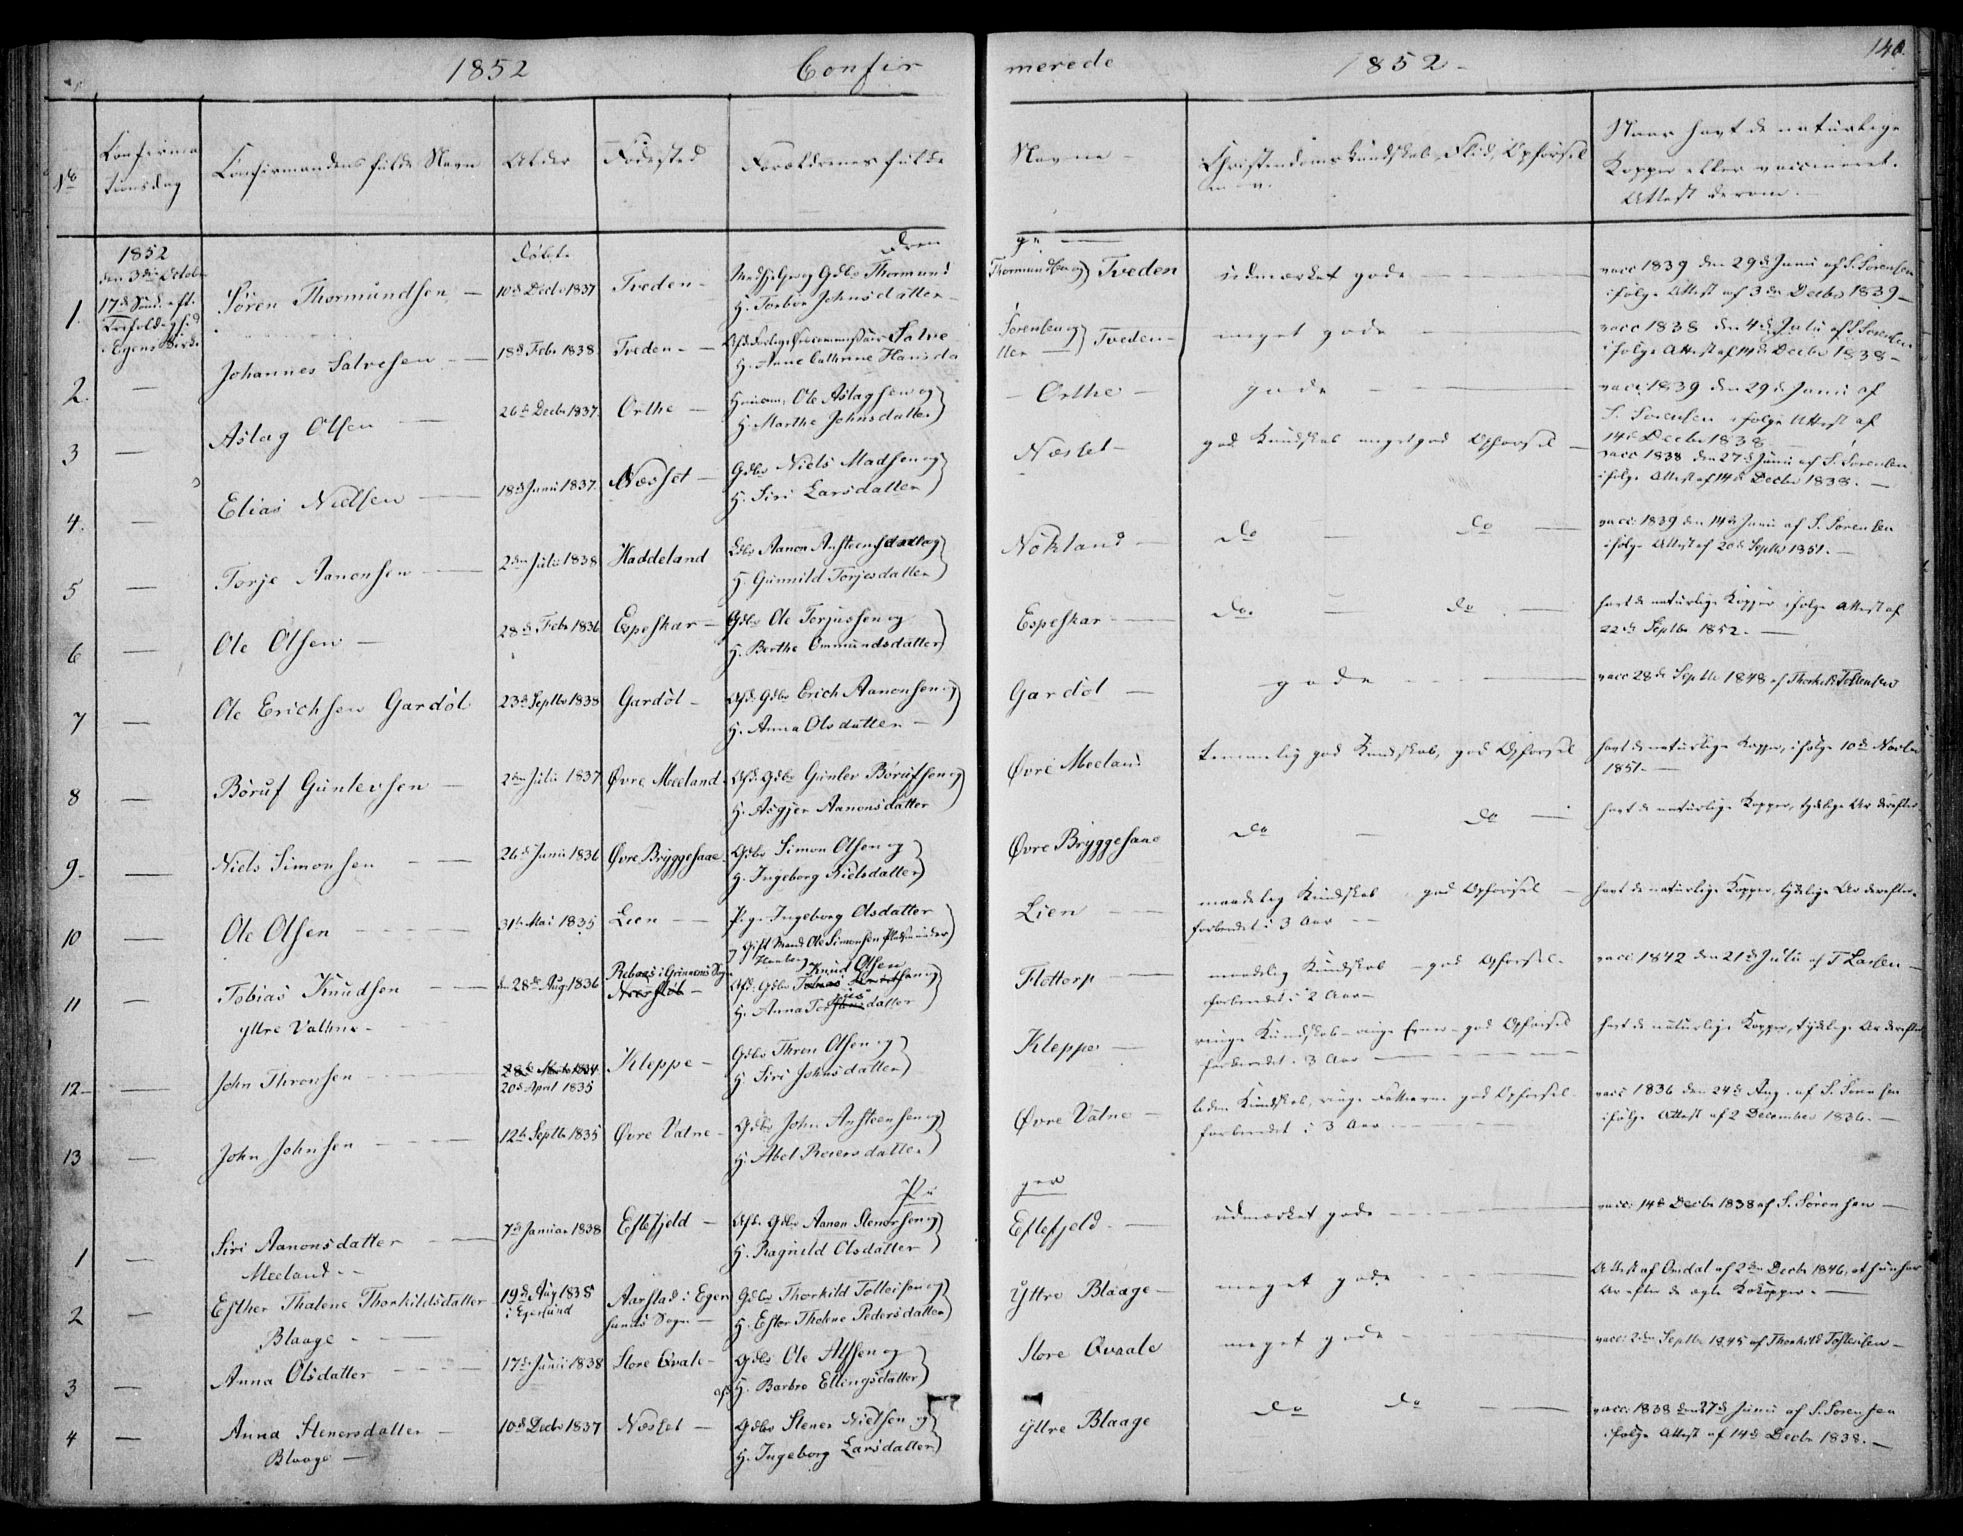 1852 Confirmerede 1852 140.
No Confirmationsdag Confirmandens fulde Navn Alder Fødested Forældrenes fulde Navne Christendomskundskab, Flid, Opførsel m. v. Naar havt de naturlige Kopper eller vaccineret. Attest derom.
1852 den 3die October 17de Sønd. eft. Trefoldigh.
Født.
Drenge
1. Søren Thormundsen 10de Decbr 1837 Tveden Gdbr Thormund Thormundsen og H. Torbor Johnsdatter Tveden udmærket gode vacc 1839 den 29de Juni af S. Sørensen ifølge Attest af 3die Decbr 1839
2. Johannes Salvesen 18de Febr 1838 Tveden Salve Sørensen og H. Anne Cathrine Hansdatter Tveden meget gode vacc 1838 den 4de Juli af S. Sørensen ifølge Attest af 14de Decbr 1838
3 Aslag Olsen 26de Decbr 1837. Orthe Ole Aslagsen og H. Marthe Johnsdatter Orthe gode vacc: 1839 den 29de Juni af S. Sørensen ifølge Attest af 14de Decbr 1838
4. Elias Nielsen 18de Juni 1837. Næsset Gdbr Niels Madsen og H. Siri Larsdatter Næsset god Kundskab meget god Opførsel vacc 1838 den 27de Juni af S. Sørensen ifølge Attest af 14de Decbr 1838.
5 Torje Aanonsen 2den Juli 1838 Haddeland Gdbr Aanon Ansteensen og H. Gunnild Torjesdatter Nøkland Do Do vacc: 1839 den 14de Juni af S. Sørensen ifølge Attest af 20de Septbr 1851.
6 Ole Olsen 28de Febr 1836 Espeskar Gdbr Ole Torjussen og H. Berthe Ommundsdatter Espeskar Do. Do. havt de naturlige Kopper ifølge Attest af 22de Septbr 1852.
7 Ole Erichsen Gardøl 23de Septbr 1838 Gardøl Afd. Gdbr Erich Aanonsen og H. Anna Olsdatter Gardøl gode vacc 28de Septbr 1848 af Thorkild Tollevsen
8 Børuf Gunlevsen 2den Juli 1837 Øvre Meeland Afd. Gdbr Gunlev Børufsen og H. Asgjer Aanonsdatter Øvre Meeland temmelig god Kundskab, god Opførsel havt de naturlige Kopper, ifølge 10de Novbr 1851.
9. Niels Simonsen 26de Juni 1836 Øvre Bryggesaae Gdbr Simon Olsen og H. Ingeborg Nielsdatter Øvre Bryggesaae Do Do havt de naturlige Kopper, tydelige Ar derefter
10 Ole Olsen 31te Mai 1835 Lien Pige Ingeborg Olsdatter og Gift Mand Ole Simonsen Lien maadelig Kundskab god Opførsel forberedet i 3 Aar havt de naturlige Kopper, tydelige Ar derefter.
11 Tobias Knudsen Yttre Vathne den 28de Aug. 1836 Rebaas i Grimnæs Sogn Afd. Gdbr Knud Olsen og H. Anna datter Flottorp maadelig Kundskab god Opførsel. forberedet i 2 Aar vacc: 1842 den 21de Juli af T Larsen
12 John Thronsen 20de April 1835 Kleppe Gdbr Thron Olsen og H Siri Johnsdatter Kleppe ringe Kundskab ringe Evner god Opførsel forberedet i 3 Aar havt de naturlige Kopper, tydelige Ar derefter
13 John Johnsen 12te Septbr 1835 Øvre Vatne Gdbr John Ansteensen og H. Abel Reiersdatter Øvre Vatne liden Kundskab, ringe Fatteevne god Opførsel forberedet i 3 Aar vacc 1836 den 24de Aug. af S. Sørensen ifølge Attest af 2 December 1836.
Piger
1 Siri Aanonsdatter Meeland 7de Januar 1838 Eftefjeld Afd. Gdbr Aanon Stenersen og H. Ragnild Olsdatter Eftefjeld. udmærket gode vacc: 14de Decbr 1838 af S. Sørensen
2 Esther Thalene Thorkildsdatter Blaage 19de Aug 1838 i Egersund Aarstad i Egersunds Sogn Gdbr Thorkild Tollefsen og H. Ester Thalene Pedersdatter Yttre Blaage meget gode Attest af Omdal af 2den Decbr 1846, at hun har Ar efter de ægte Kokopper.
3 Anna Olsdatter 17de Juni 1838 Store Qvale Gdbr Ole Alfsen og afd. H. Barbro Ellingsdatter Store Qvaale meget gode vacc: 2den Septbr 1845 af Thorkild Tollevsen
4 Anna Stenersdatter Blaage 10de Decbr 1837 Næsset Gdbr Stener Nielsen og H. Ingeborg Larsdatter Yttre Blaage Do Do vacc: 1838 den 27de Juni af S. Sørensen ifølge Attest af 14de Decbr 1838.